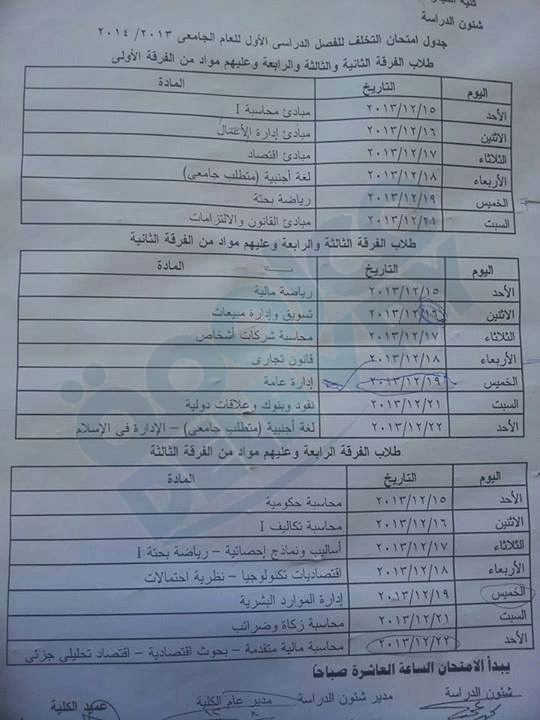 شئون الدراسة
جدول امتحان التخلف للفصل الدراسى الأول للعام الجامعى ٢٠١٣/ ٢٠١٤
طلاب الفرقة الثانية والثالثة والرابعة وعليهم مواد من الفرقة الأولى
اليوم التاريخ المادة
الأحد ٢٠١٣/١٢/١٥ مبادئ محاسبة I
الاثنين ٢٠١٣/١٢/١٦ مبادئ إدارة الأعمال
الثلاثاء ٢٠١٣/١٢/١٧ مبادئ اقتصاد
الأربعاء ٢٠١٣/١٢/١٨ لغة أجنبية (متطلب جامعى)
الخميس ٢٠١٣/١٢/١٩ رياضة بحتة
السبت ٢٠١٣/١٢/٢١ مبادئ القانون والالتزامات
طلاب الفرقة الثالثة والرابعة وعليهم مواد من الفرقة الثانية
اليوم التاريخ المادة
الأحد ٢٠١٣/١٢/١٥ رياضة مالية
الاثنين ٢٠١٣/١٢/١٦ تسويق وإدارة مبيعات
الثلاثاء ٢٠١٣/١٢/١٧ محاسبة شركات أشخاص
الأربعاء ٢٠١٣/١٢/١٨ قانون تجارى
الخميس ٢٠١٣/١٢/١٩ إدارة عامة
السبت ٢٠١٣/١٢/٢١ نقود وبنوك وعلاقات دولية
الأحد ٢٠١٣/١٢/٢٢ لغة أجنبية (متطلب جامعى) – الإدارة فى الإسلام
طلاب الفرقة الرابعة وعليهم مواد من الفرقة الثالثة
اليوم التاريخ المادة
الأحد ٢٠١٣/١٢/١٥ محاسبة حكومية
الاثنين ٢٠١٣/١٢/١٦ محاسبة تكاليف I
الثلاثاء ٢٠١٣/١٢/١٧ أساليب ونماذج إحصائية – رياضة بحتة I
الأربعاء ٢٠١٣/١٢/١٨ اقتصاديات تكنولوجيا – نظرية احتمالات
الخميس ٢٠١٣/١٢/١٩ إدارة الموارد البشرية
السبت ٢٠١٣/١٢/٢١ محاسبة زكاة وضرائب
الأحد ٢٠١٣/١٢/٢٢ محاسبة مالية متقدمة – بحوث اقتصادية – اقتصاد تحليلى جزئى
يبدأ الامتحان الساعة العاشرة صباحاً
شئون الدراسة مدير شئون الدراسة مدير عام الكلية عميد الكلية